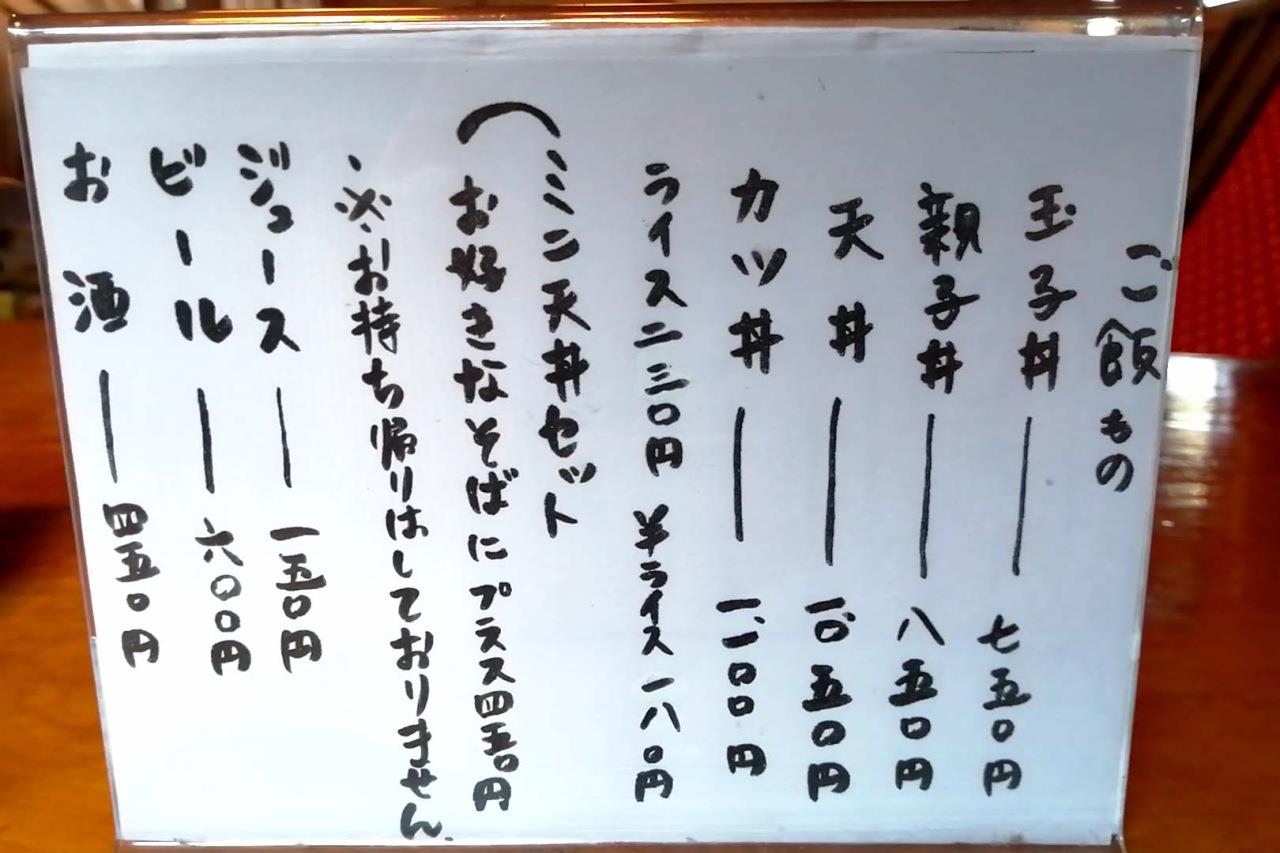 ご飯もの
玉子丼 ― 七五〇円
親子丼 ― 八五〇円
天丼 ― 一、〇五〇円
カツ丼 ― 一、一〇〇円
ライス二三〇円 半ライス一八〇円
ミニ天丼セット
お好きなそばにプラス四五〇円
※お持ち帰りはしておりません.
ジュース ― 一五〇円
ビール ― 六〇〇円
お酒 ― 四五〇円